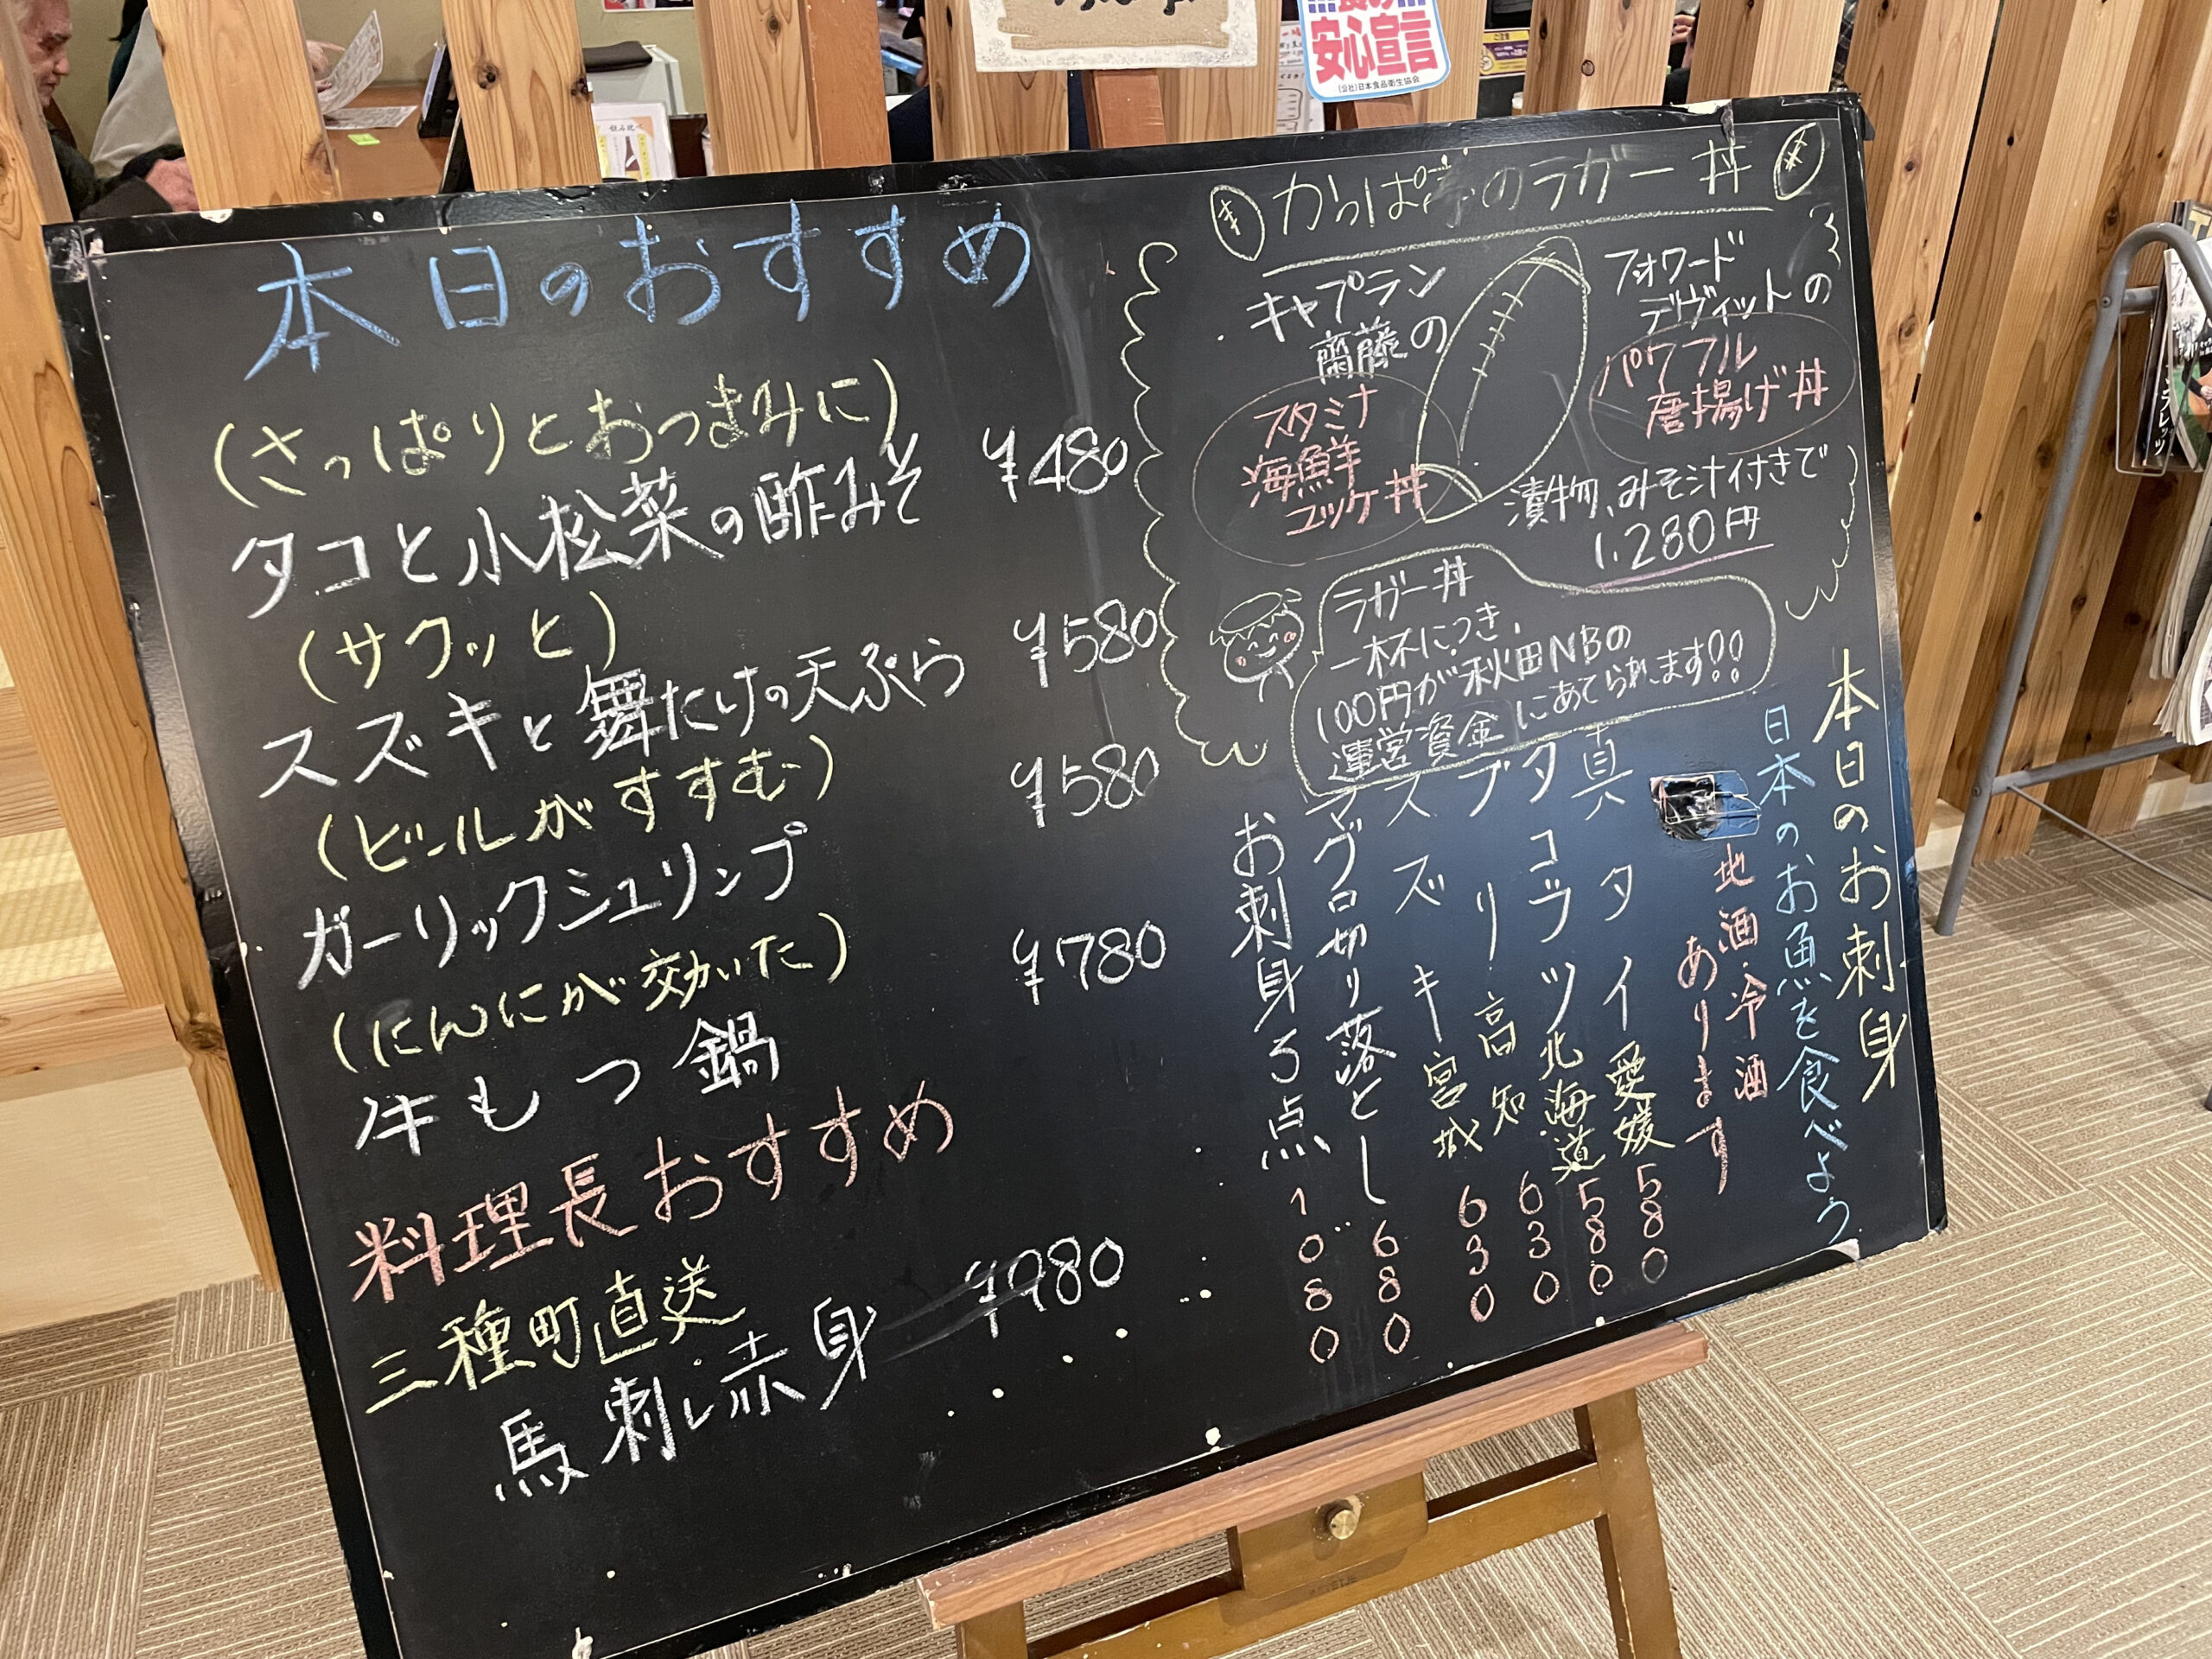 安心宣言
(公社)日本食品衛生協会
本日のおすすめ
(さっぱりとおつまみに)
タコと小松菜の酢みそ ¥480
(サクッと)
スズキと舞たけの天ぷら ¥580
(ビールがすすむ)
ガーリックシュリンプ ¥580
(にんにくが効いた)
牛もつ鍋 ¥780
料理長おすすめ
三種町直送
馬刺し赤身 ¥980
かっぱ寿のラガー丼
キャプテン
齋藤の
スタミナ
海鮮
ユッケ丼
フォワード
デヴィットの
パワフル
唐揚げ丼
漬物、みそ汁付きで
1.280円
ラガー丼
一杯につき、
100円が秋田NBの
運営資金にあてられます!!
本日のお刺身
日本のお魚を食べよう
地酒・冷酒
あります
真タイ 愛媛 580
タコブツ 北海道 580
ブリ 高知 630
スズキ 宮城 630
マグロ切り落とし 680
お刺身5点 1080